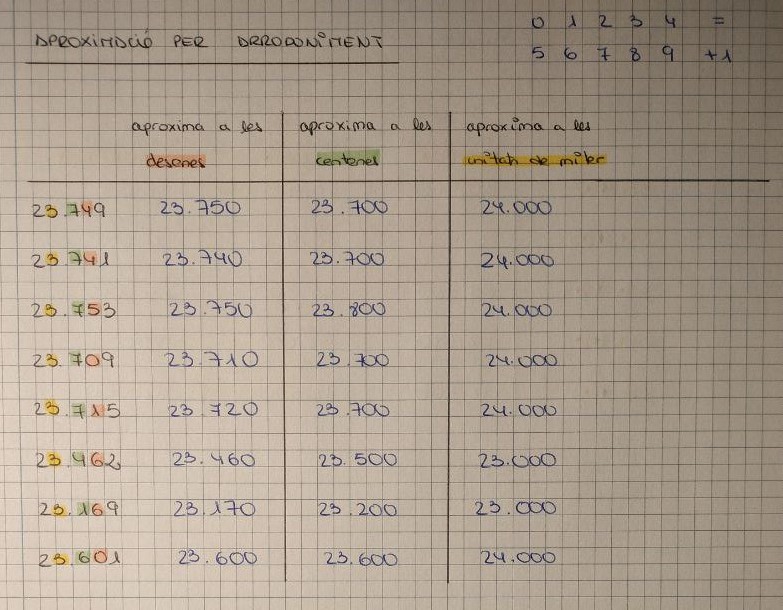 APROXIMACIÓ PER ARRODONIMENT
0 1 2 3 4 =
5 6 7 8 9 +1
aproxima a les aproxima a les aproxima a les
desenes centenes unitats de miler
23.749 23.750 23.700 24.000
23.741 23.740 23.700 24.000
23.753 23.750 23.800 24.000
23.709 23.710 23.700 24.000
23.715 23.720 23.700 24.000
23.462 23.460 23.500 23.000
23.169 23.170 23.200 23.000
23.601 23.600 23.600 24.000